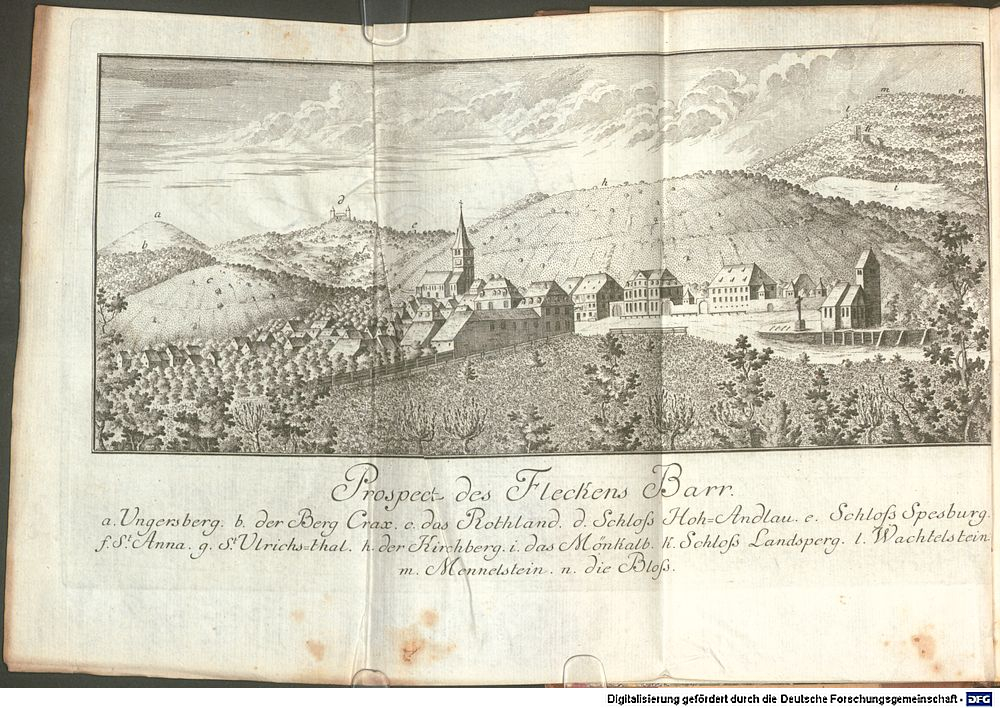 m n
l
k
h
i
d
a
e
b
c
Prospect des Fleckens Barr.
a. Ungersberg. b. der Berg Crax. c. das Rothland. d. Schloß Hoh=Andlau. e. Schloß Spesburg.
f. St. Anna. g. St. Ulrichs=thal. h. der Kirchberg. i. das Mönkalb. k. Schloß Landsperg. l. Wachtelstein
m. Mennelstein. n. die Bloß.
Digitalisierung gefördert durch die Deutsche Forschungsgemeinschaft - DFG